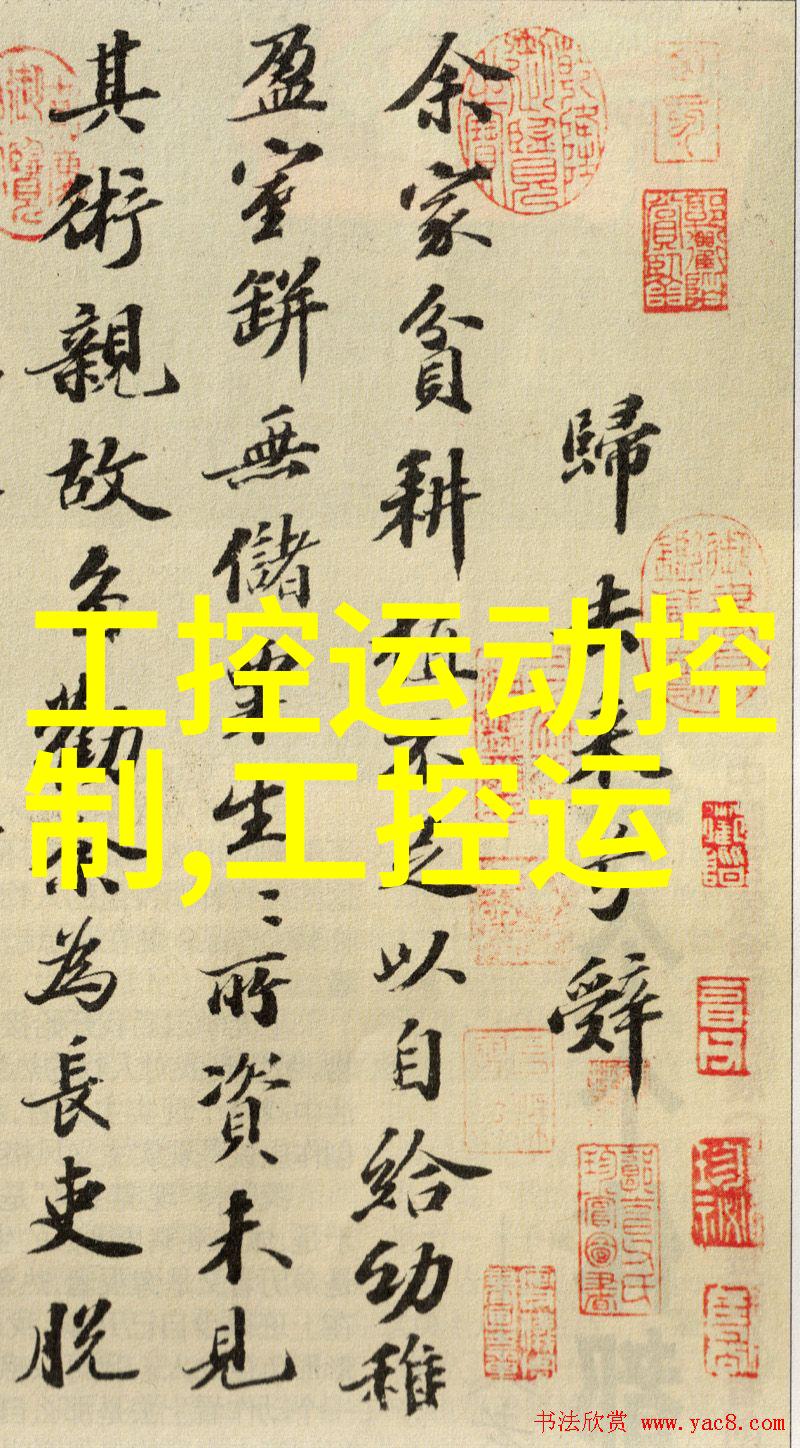 歸去来兮辭
余家貧耕植不足以自給幼稚
盈室缾無儲粟生〻所資未見
其術親故多勸余為長吏脱
工控运动控
制,工控运
书法欣赏 www.yac8.com